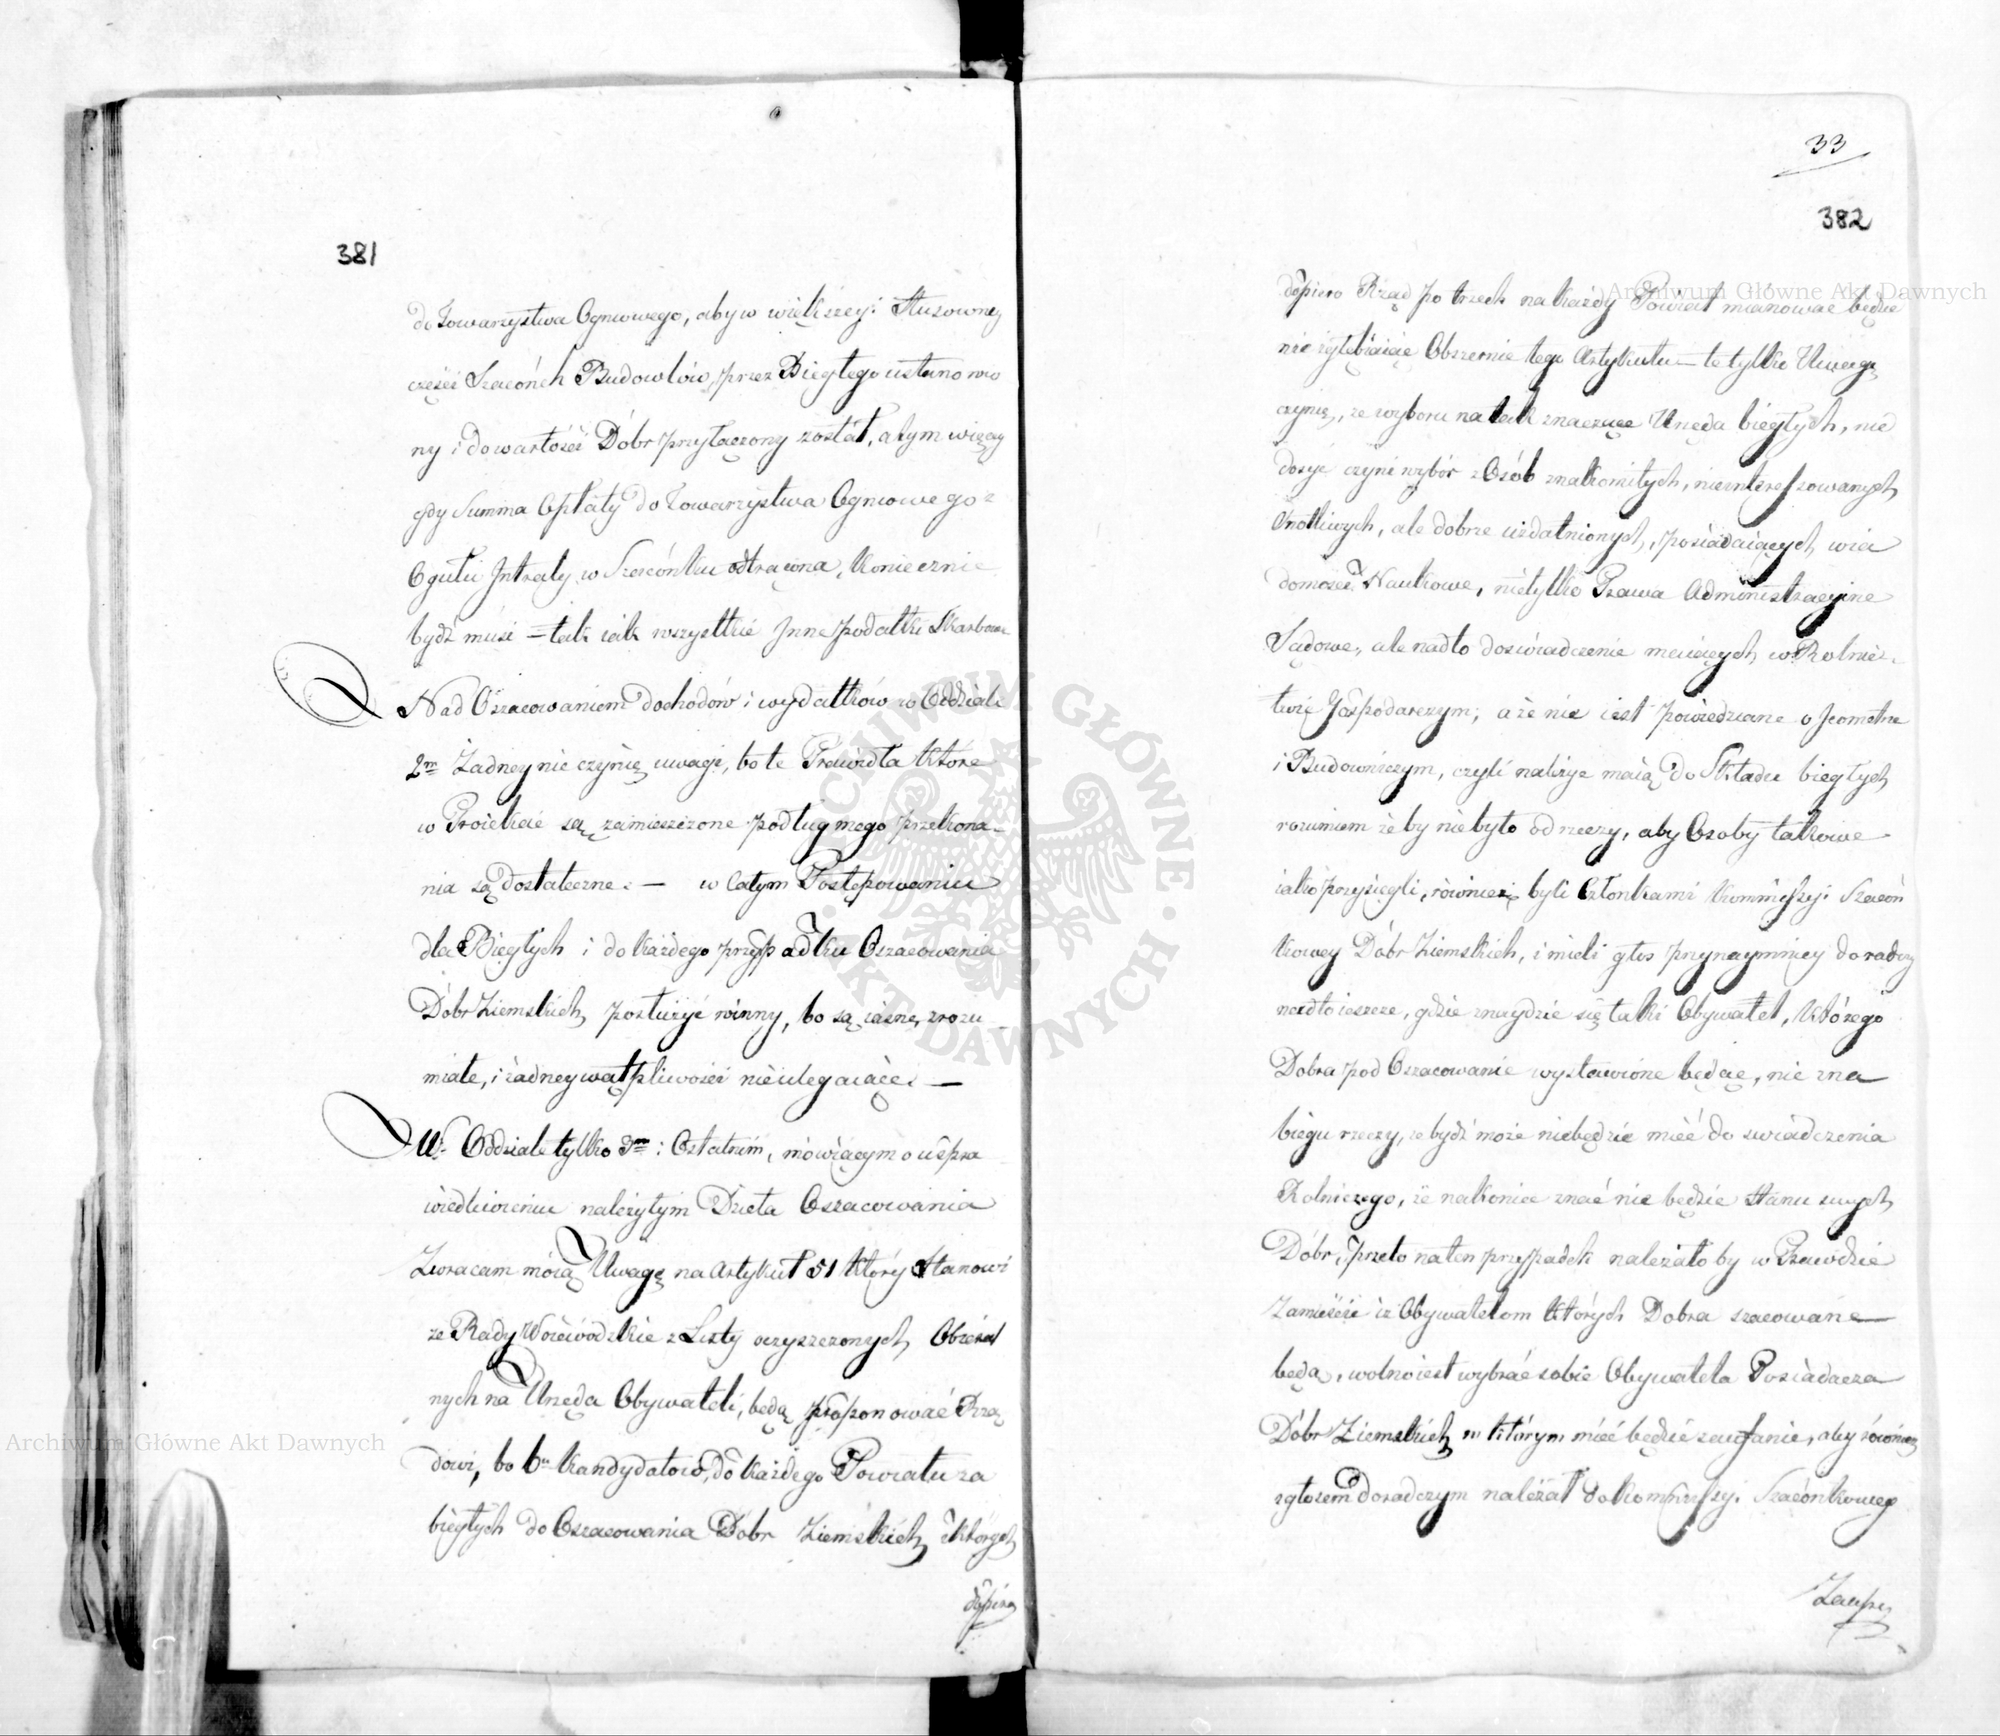 381
do Towarzystwa Ogniowego, aby w większey: stusowney
części Szacónek Budowlów, przez Biegłego ustanowio
ny i do wartości Dóbr przyłączony został, a tym więcey
gdy Summa Opłaty do Towarzystwa Ogniowego z
Ogułu Intraty w Szacónku odtrącona, koniecznie
bydź musi – tak iak wszystkie Inne podatki Skarbowe
Nad Oszacowaniem dochodów i wydatków w Oddziale
2m Żadney nie czynię uwagi, bo te Prawidła które
w Proiekcie są zamieszczone podług mego przekona-
nia są dostateczne. — w całym Postępowaniu
dla Biegłych i do każdego przypadku Oszacowania
Dóbr Ziemskich, posłużyć winny, bo są iasne, zrozu
miałe, i żadney wątpliwości nieulegaiące. —
W Oddziale tylko 3m i Ostatnim, mówiącym o uspra
wiedliwieniu należytym Dzieła Oszacowania
Zwracam moią Uwagę na Artykuł 51 który stanowi
że Rady Woiewódzkie z Listy oczyszczonych Obieral
nych na Urzęda Obywateli, będą proponować Rzą
dowi, bo 6u kandydatow, do każdego Powiatu za
biegłych do Oszacowania Dobr Ziemskich, z których
dopiero
33
382
dopiero Rząd po trzech na każdy Powiat mianować będzie
nie zgłębiaiąc Obszernie tego Artykułu – te tylko Uwagę
czynię, że wyboru na tak znaczące Urzęda biegłych, nie
dosyć czyni wybór z Osób znakomitych, nieinteressowanych
Cnotliwych, ale dobrze uzdatnionych, posiadaiących wia
domości Naukowe, nietylko Prawa Administracyine
Sądowe, ale nadto doświadczenie maiących w Rolnic-
twie Gospodarczym; a że nie iest powiedziane o Jeometrze
i Budowniczym, czyli należyć maią do Składu biegłych
rozumiem żeby niebyło od rzeczy, aby Osoby takowe
iako przysięgli, również byli Członkami Kommissyi Szacón
kowey Dóbr Ziemskich, i mieli głos przynaymniey doradczy
nadto ieszcze, gdzie znaydzie się taki Obywatel, którego
Dobra pod Oszacowanie wystawione będące, nie zna
biegu rzeczy, że bydź może niebędzie mieć do swiadczenia
Rolniczego, że nakoniec znać nie będzie stanu swych
Dóbr, przeto na ten przypadek należało by w Prawdzie
zamieścić iż Obywatelom których Dobra szacowane —
będą, wolno iest wybrać sobie Obywatela Posiadacza
Dóbr Ziemskich w którym mieć będzie zaufanie, aby również
z głosem doradczym należał do kommissyi Szacónkowey